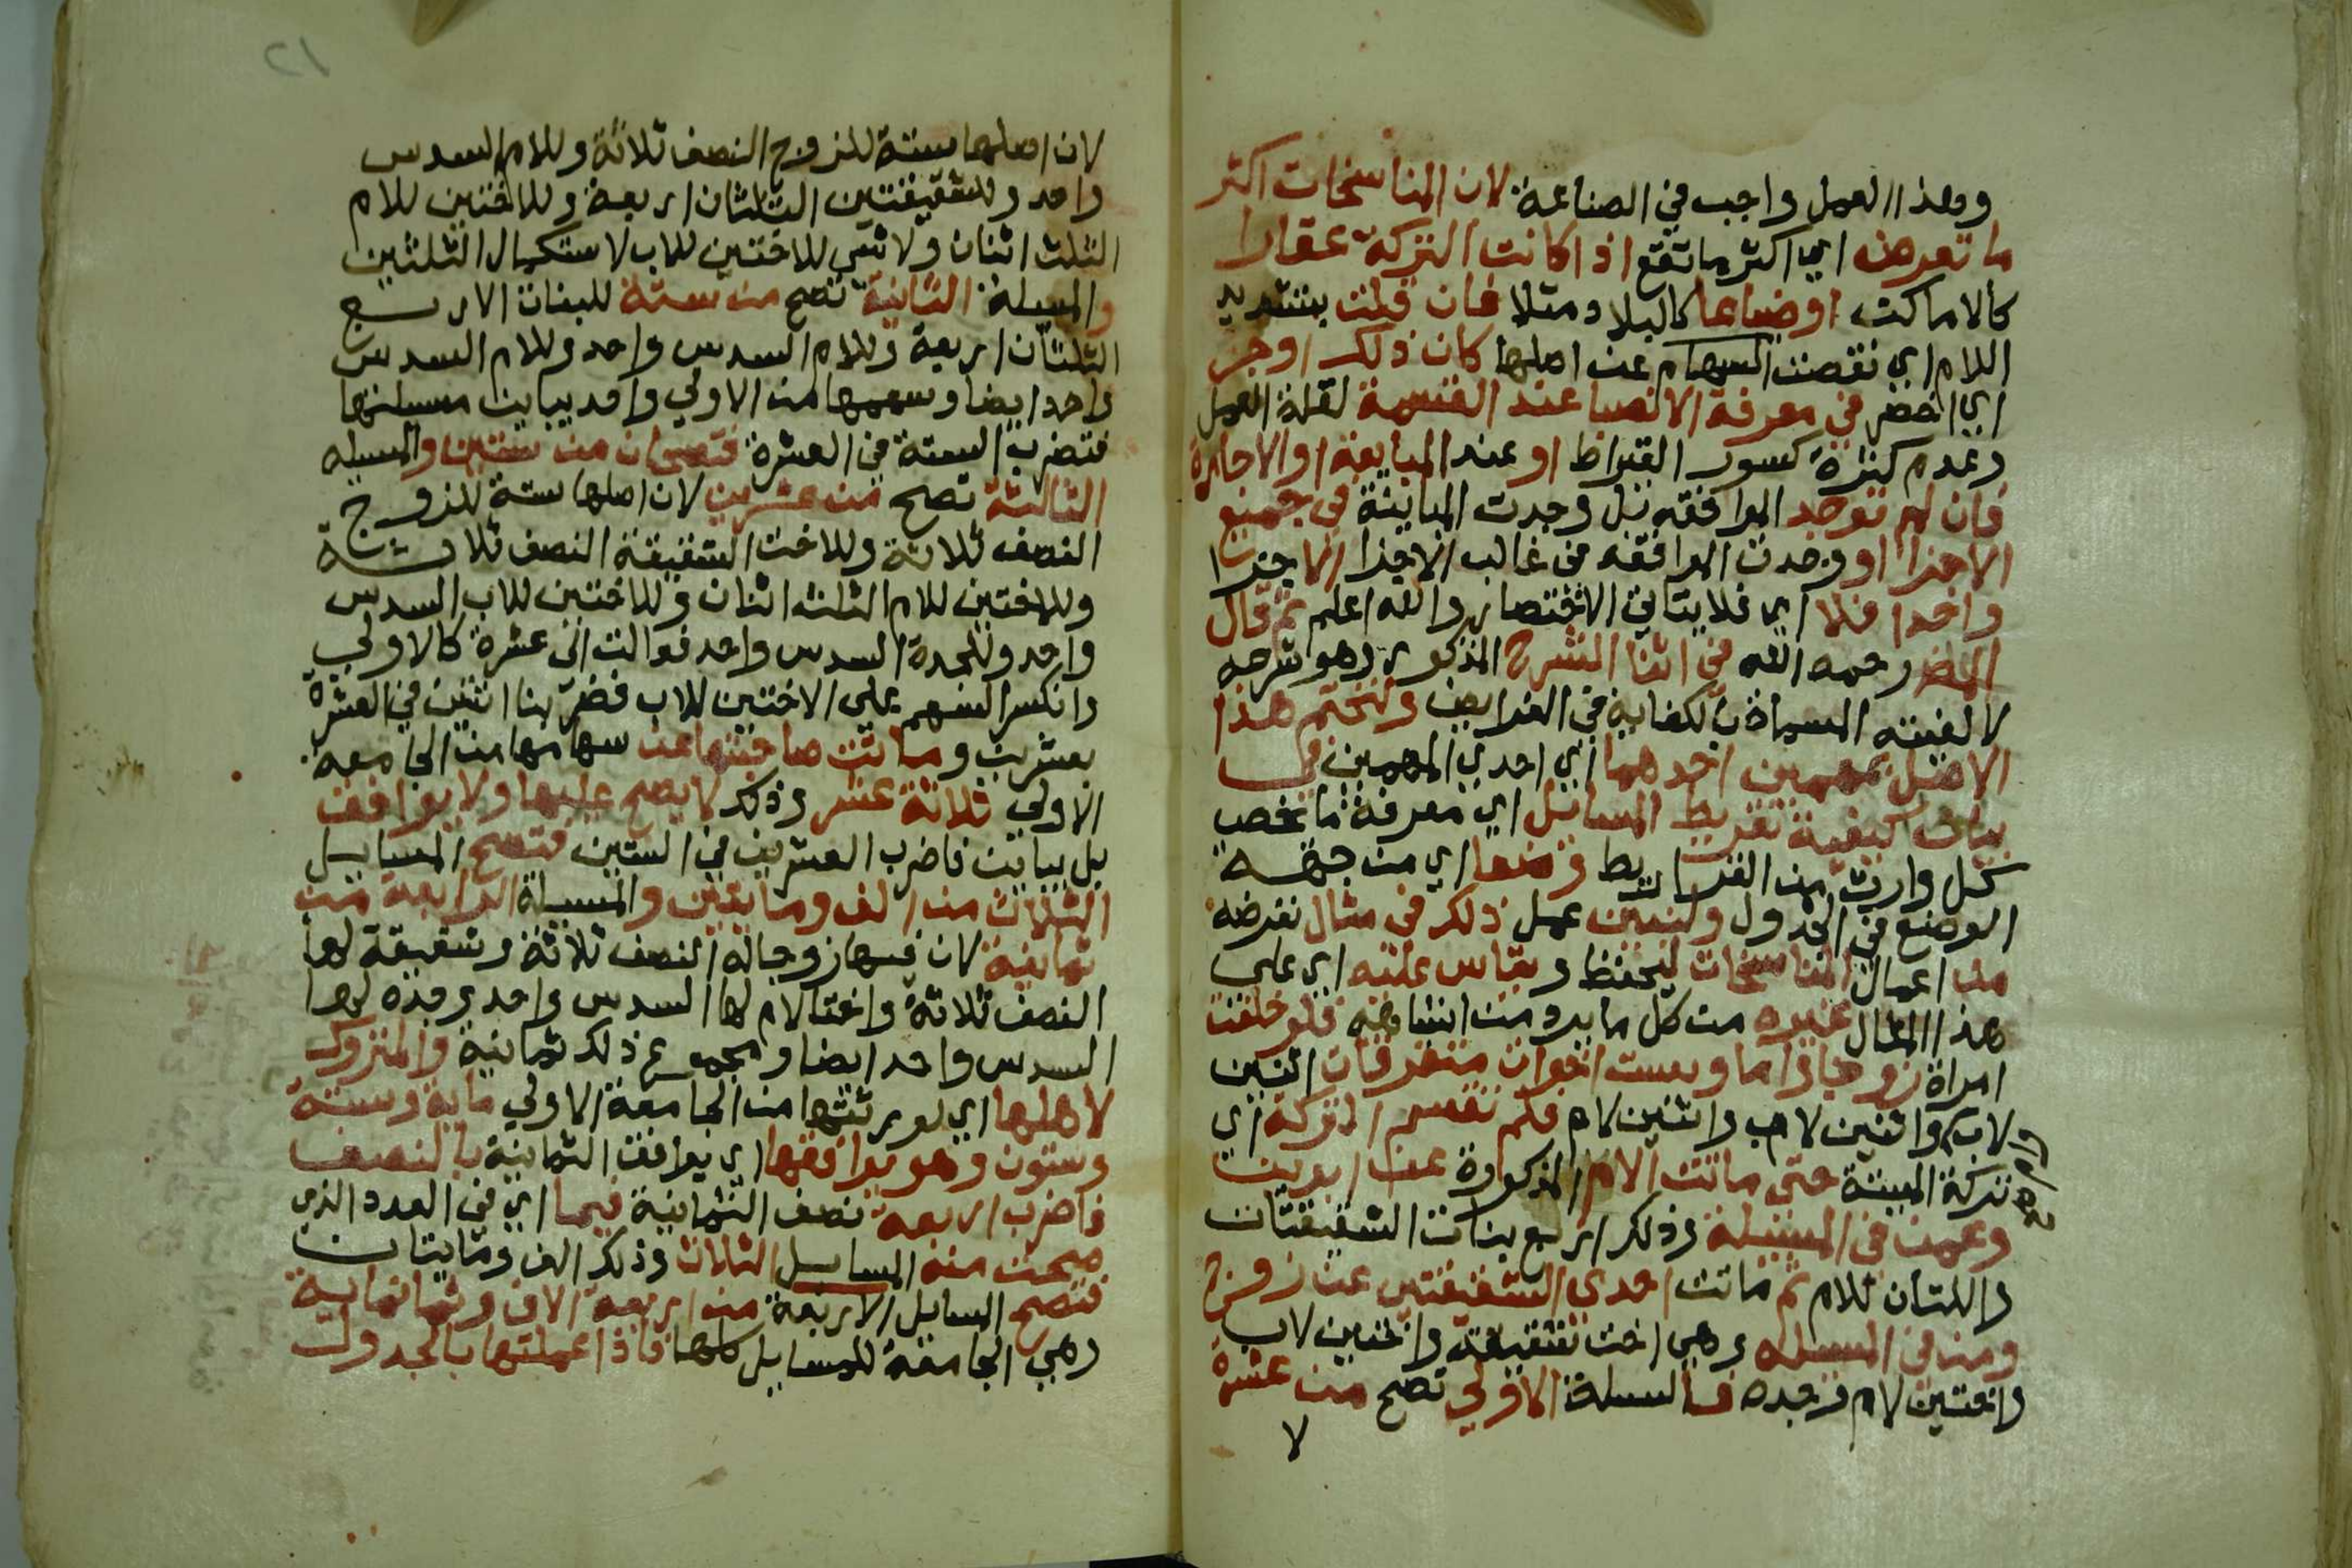 وهذا العمل واجب في الصناعة لان المناسخات اكثر
ما تعرض اي اكثر ما تقع اذا كانت التركة عقارا
كالاماكن او ضياعا كالبلاد مثلا فان قللت بتشديد
اللام اي نقصت السهام عن اصلها كان ذلك اوجز
اي اخصر في معرفة الانصبا عند القسمة لقلة العمل
وعدم كثرة كسور القيراط او عند المبايعة او الاجارة
فان لم توجد الموافقه بل وجدت المباينة في جميع
الاجزا او وجدت الموافقه في غالب الاجزا الا جزا
واحدا فلا اي فلا يتاتي الاختصار والله اعلم ثم قال
المص رحمه الله في اثنا الشرح المذكور وهو شرحه
لالفيته المسماة بالكفاية في الفرايض ولنختم هذا
الاصل بمهمين احدهما اي احدي المهمين في
بيان كيفية تقريط المسايل اي معرفة ما يخص
كل وارث من القراريط وضعا اي من جهة
الوضع في الجدول ولنبين عمل ذلك في مثال نفرضه
من اعمال المناسخات ليحفظ ويقاس عليه اي علي
هذا المثال غيره من كل ما يرد من اشباهه فلو خلفت
امراة زوجا واما وست اخوات متفرقات اثنتين
لاب واثنين لاب واثنين لام فلم نقسم التركة اي
تركة الميتة حتي ماتت الام المذكورة عن ابوين
وعمن في المسيلة وذلك اربع بنات الشقيقتان
واللتان للام ثم ماتت احدي الشقيقتين عن زوج
ومن في المسيله وهي اخت شقيقة واختين لاب
واختين لام وجده فالمسيلة الاولي تصح من عشرة
لا
١٢
لان اصلها ستة للزوج النصف ثلاثة وللام السدس
واحد وللشقيقتين الثلثان اربعة وللاختين للام
الثلث اثنان ولا شي للاختين للاب لاستكمال الثلثين
والمسيلة الثانية تصح من ستة للبنات الاربع
الثلثان اربعة وللام السدس واحد وللام السدس
واحد ايضا وسهمها من الاولي واحد يباين مسيلتها
فتضرب الستة في العشرة فتصحان من ستين والمسيله
الثالثة تصح من عشرين لان اصلها ستة للزوج
النصف ثلاثة وللاخت الشقيقة النصف ثلاثة
وللاختين للام الثلث اثنان وللاختين للاب السدس
واحد وللجدة السدس واحد فعالت الى عشرة كالاولي
وانكسر السهم علي الاختين للاب فضربنا اثنين في العشرة
بعشرين وماتت صاحبتها عن سهامها من الجامعه
الاولي ثلاثة عشر وذلك لا يصح عليها ولا يوافق
بل يباين فاضرب العشرين في الستين فتصح المسايل
الثلاث من الف ومايتين والمسيلة الرابعة من
ثمانية لان فيها زوجا له النصف ثلاثة وشقيقة لها
النصف ثلاثة واختا لام لها السدس واحد وجده لها
السدس واحد ايضا ومجموع ذلك ثمانية والمتروك
لاهلها اي لورثتها من الجامعة الاولي ماية وستة
وستون وهو يوافقها اي يوافق الثمانية بالنصف
فاضرب اربعة نصف الثمانية فيما اي في العدد الذي
صحت منه المسايل الثلاث وذلك الف ومايتان
فتصح المسايل الاربعة من اربعة الاف وثمانماية
وهي الجامعة للمسايل كلها فاذا عملتها بالجدول